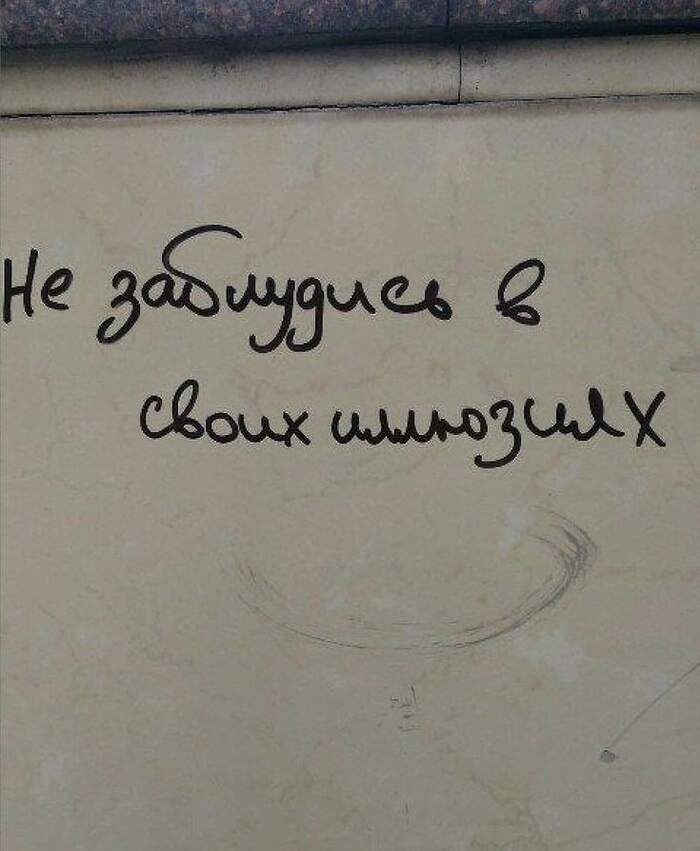 Не заблудись в
своих иллюзиях